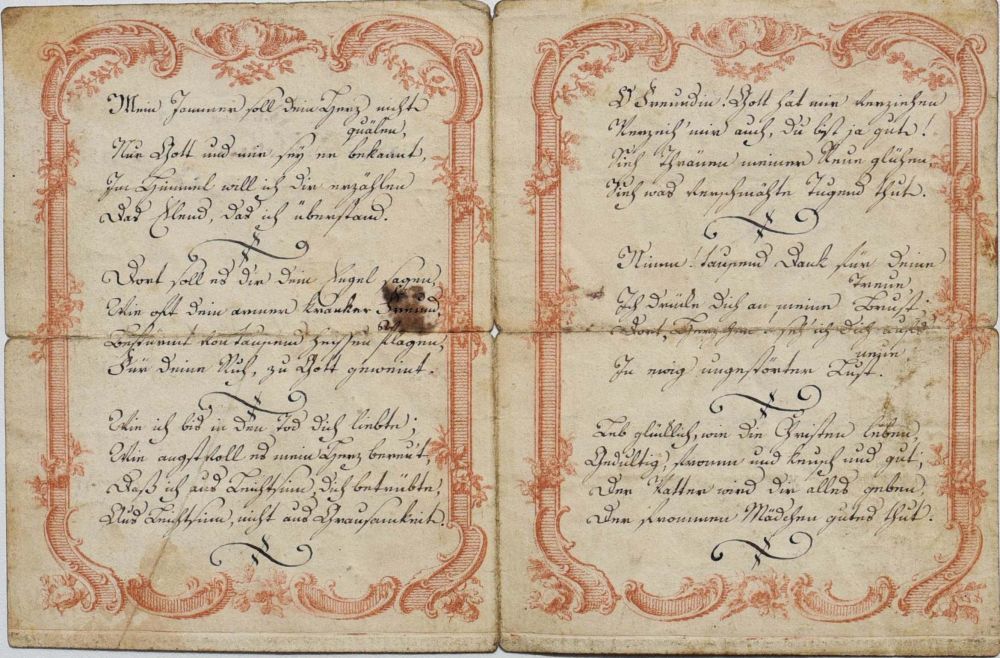 Mein Jammer soll dein Herz nicht
quälen,
Nur Gott und mir sey er bekannt,
Im Himmel will ich dir erzählen
Das Elend, das ich überstand.
Dort soll es dir dein Engel sagen,
Wie oft dein armer kranker Freund,
Bestürmt von tausend heissen Plagen,
Für deine Ruh, zu Gott geweint.
Wie ich bis in den Tod dich liebte;
Wie angstvoll es mein Herz bereut,
Daß ich aus Leichtsinn, dich betrübte,
Aus Leichtsinn, nicht aus Grausamkeit.
O Freundin! Gott hat mir verziehen
Verzeih' mir auch, du bist ja gut!
Sieh Thränen meiner Reue glühen,
Sieh was verschmähte Tugend thut.
Nimm! tausend Dank für deine
Treue,
Ich drücke dich an meine Brust;
Dort, Herzchen seh' ich dich aufs
neue
In ewig ungestörter Lust.
Leb glücklich, wie die Christen leben,
Gedultig, fromm und keusch und gut;
Der Vatter wird dir alles geben,
Der frommen Mädchen gutes thut.